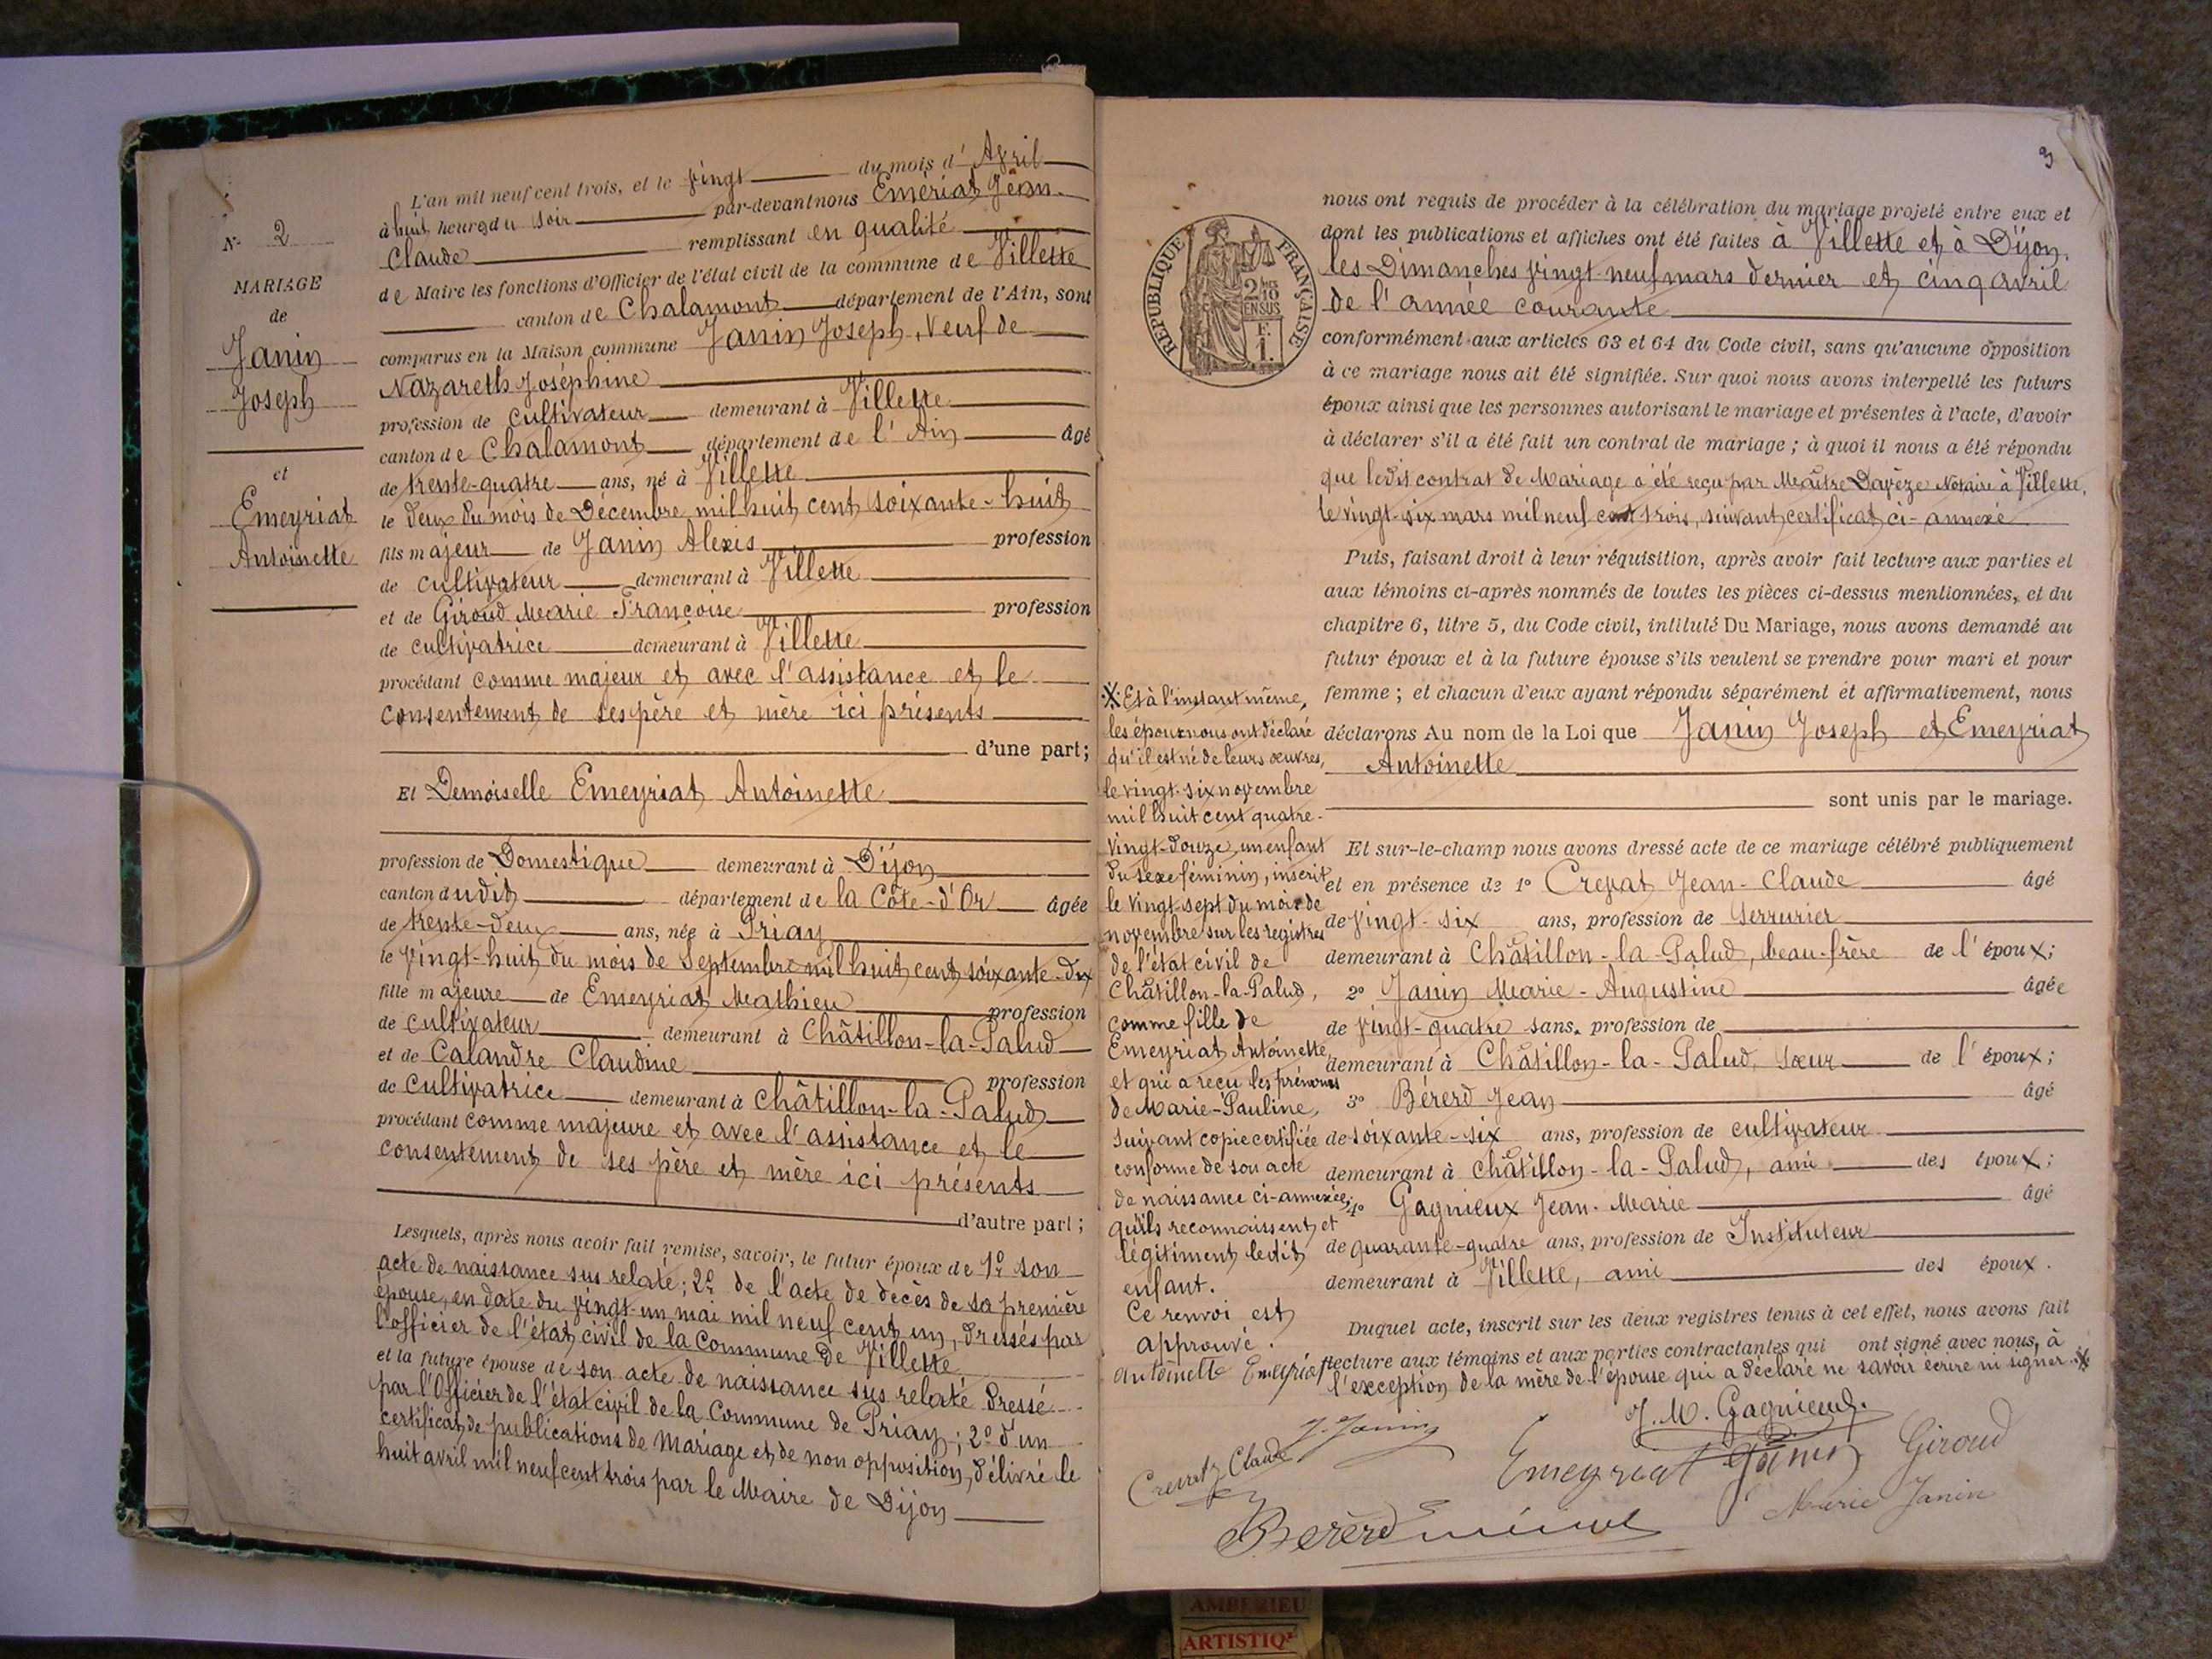 N° 2
MARIAGE
de
Janin
Joseph
et
Emeyriat
Antoinette
L'an mil neuf cent trois, et le vingt du mois d' Avril
à huit heures du soir par-devant nous Emériat Jean-
Claude remplissant en qualité
de Maire les fonctions d'Officier de l'état civil de la commune de Villette
canton de Chalamont département de l'Ain, sont
comparus en la Maison commune Janin Joseph, Veuf de
Nazareth Joséphine
profession de cultivateur demeurant à Villette
canton de Chalamont département de l'Ain âgé
de trente-quatre ans, né à Villette
le deux du mois de Décembre mil huit cent soixante-huit
fils majeur de Janin Alexis profession
de cultivateur demeurant à Villette
et de Giroud Marie Françoise profession
de cultivatrice demeurant à Villette
procédant comme majeur et avec l'assistance et le
consentement de ses père et mère ici présents
d'une part;
Et Demoiselle Emeyriat Antoinette
profession de Domestique demeurant à Dijon
canton dudit département de la Côte-d'Or âgée
de trente-deux ans, née à Priay
le vingt-huit du mois de Septembre mil huit cent soixante-dix
fille majeure de Emeyriat Mathieu profession
de cultivateur demeurant à Châtillon-la-Palud
et de Calandre Claudine profession
de cultivatrice demeurant à Châtillon-la-Palud
procédant comme majeure et avec l'assistance et le
consentement de ses père et mère ici présents
d'autre part;
Lesquels, après nous avoir fait remise, savoir, le futur époux de 1° son
acte de naissance sus relaté; 2° de l'acte de décès de sa première
épouse, en date du vingt-un mai mil neuf cent un, dressés par
l'officier de l'état civil de la Commune de Villette
et la future épouse de son acte de naissance sus relaté dressé
par l'Officier de l'état civil de la Commune de Priay; 2° d'un
certificat de publications de Mariage et de non opposition, délivré le
huit avril mil neuf cent trois par le Maire de Dijon
3
RÉPUBLIQUE FRANÇAISE
2/10
EN SUS
F.
1.
nous ont requis de procéder à la célébration du mariage projeté entre eux et
dont les publications et affiches ont été faites à Villette et à Dijon,
les Dimanches vingt-neuf mars dernier et cinq avril
de l'année courante
conformément aux articles 63 et 64 du Code civil, sans qu'aucune opposition
à ce mariage nous ait été signifiée. Sur quoi nous avons interpellé les futurs
époux ainsi que les personnes autorisant le mariage et présentes à l'acte, d'avoir
à déclarer s'il a été fait un contrat de mariage; à quoi il nous a été répondu
que ledit contrat de Mariage a été reçu par Maître Davèze Notaire à Villette,
le vingt-six mars mil neuf cent trois, suivant certificat ci-annexé
Puis, faisant droit à leur réquisition, après avoir fait lecture aux parties et
aux témoins ci-après nommés de toutes les pièces ci-dessus mentionnées, et du
chapitre 6, titre 5, du Code civil, intitulé Du Mariage, nous avons demandé au
futur époux et à la future épouse s'ils veulent se prendre pour mari et pour
femme; et chacun d'eux ayant répondu séparément et affirmativement, nous
déclarons Au nom de la Loi que Janin Joseph et Emeyriat
Antoinette
sont unis par le mariage.
Et sur-le-champ nous avons dressé acte de ce mariage célébré publiquement
et en présence de 1° Crevat Jean-Claude âgé
de vingt-six ans, profession de Serrurier
demeurant à Châtillon-la-Palud, beau-frère de l'époux;
2° Janin Marie-Augustine âgée
de vingt-quatre ans, profession de
demeurant à Châtillon-la-Palud, soeur de l'époux;
3° Bérerd Jean âgé
de soixante-six ans, profession de cultivateur
demeurant à Châtillon-la-Palud, ami des époux;
4° Gagnieux Jean-Marie âgé
de quarante-quatre ans, profession de Instituteur
demeurant à Villette, ami des époux.
Duquel acte, inscrit sur les deux registres tenus à cet effet, nous avons fait
lecture aux témoins et aux parties contractantes qui ont signé avec nous, à
l'exception de la mère de l'épouse qui a déclaré ne savoir écrire ni signer. ※
※ Et à l'instant même,
les époux nous ont déclaré
qu'il est né de leurs œuvres,
le vingt-six novembre
mil huit cent quatre-
vingt-douze, un enfant
du sexe féminin, inscrit
le vingt-sept du mois de
novembre sur les registres
de l'état civil de
Châtillon-la-Palud,
comme fille de
Emeyriat Antoinette
et qui a reçu les prénoms
de Marie-Pauline,
suivant copie certifiée
conforme de son acte
de naissance ci-annexée;
qu'ils reconnaissent et
légitiment ledit
enfant.
Ce renvoi est
approuvé.
Antoinette Emeyriat
J. Janin
J. M. Gagnieux
Crevat Claude
Emeyriat Janin Giroud
Marie Janin
Bérerd
AMBERIEU
ARTISTIQ